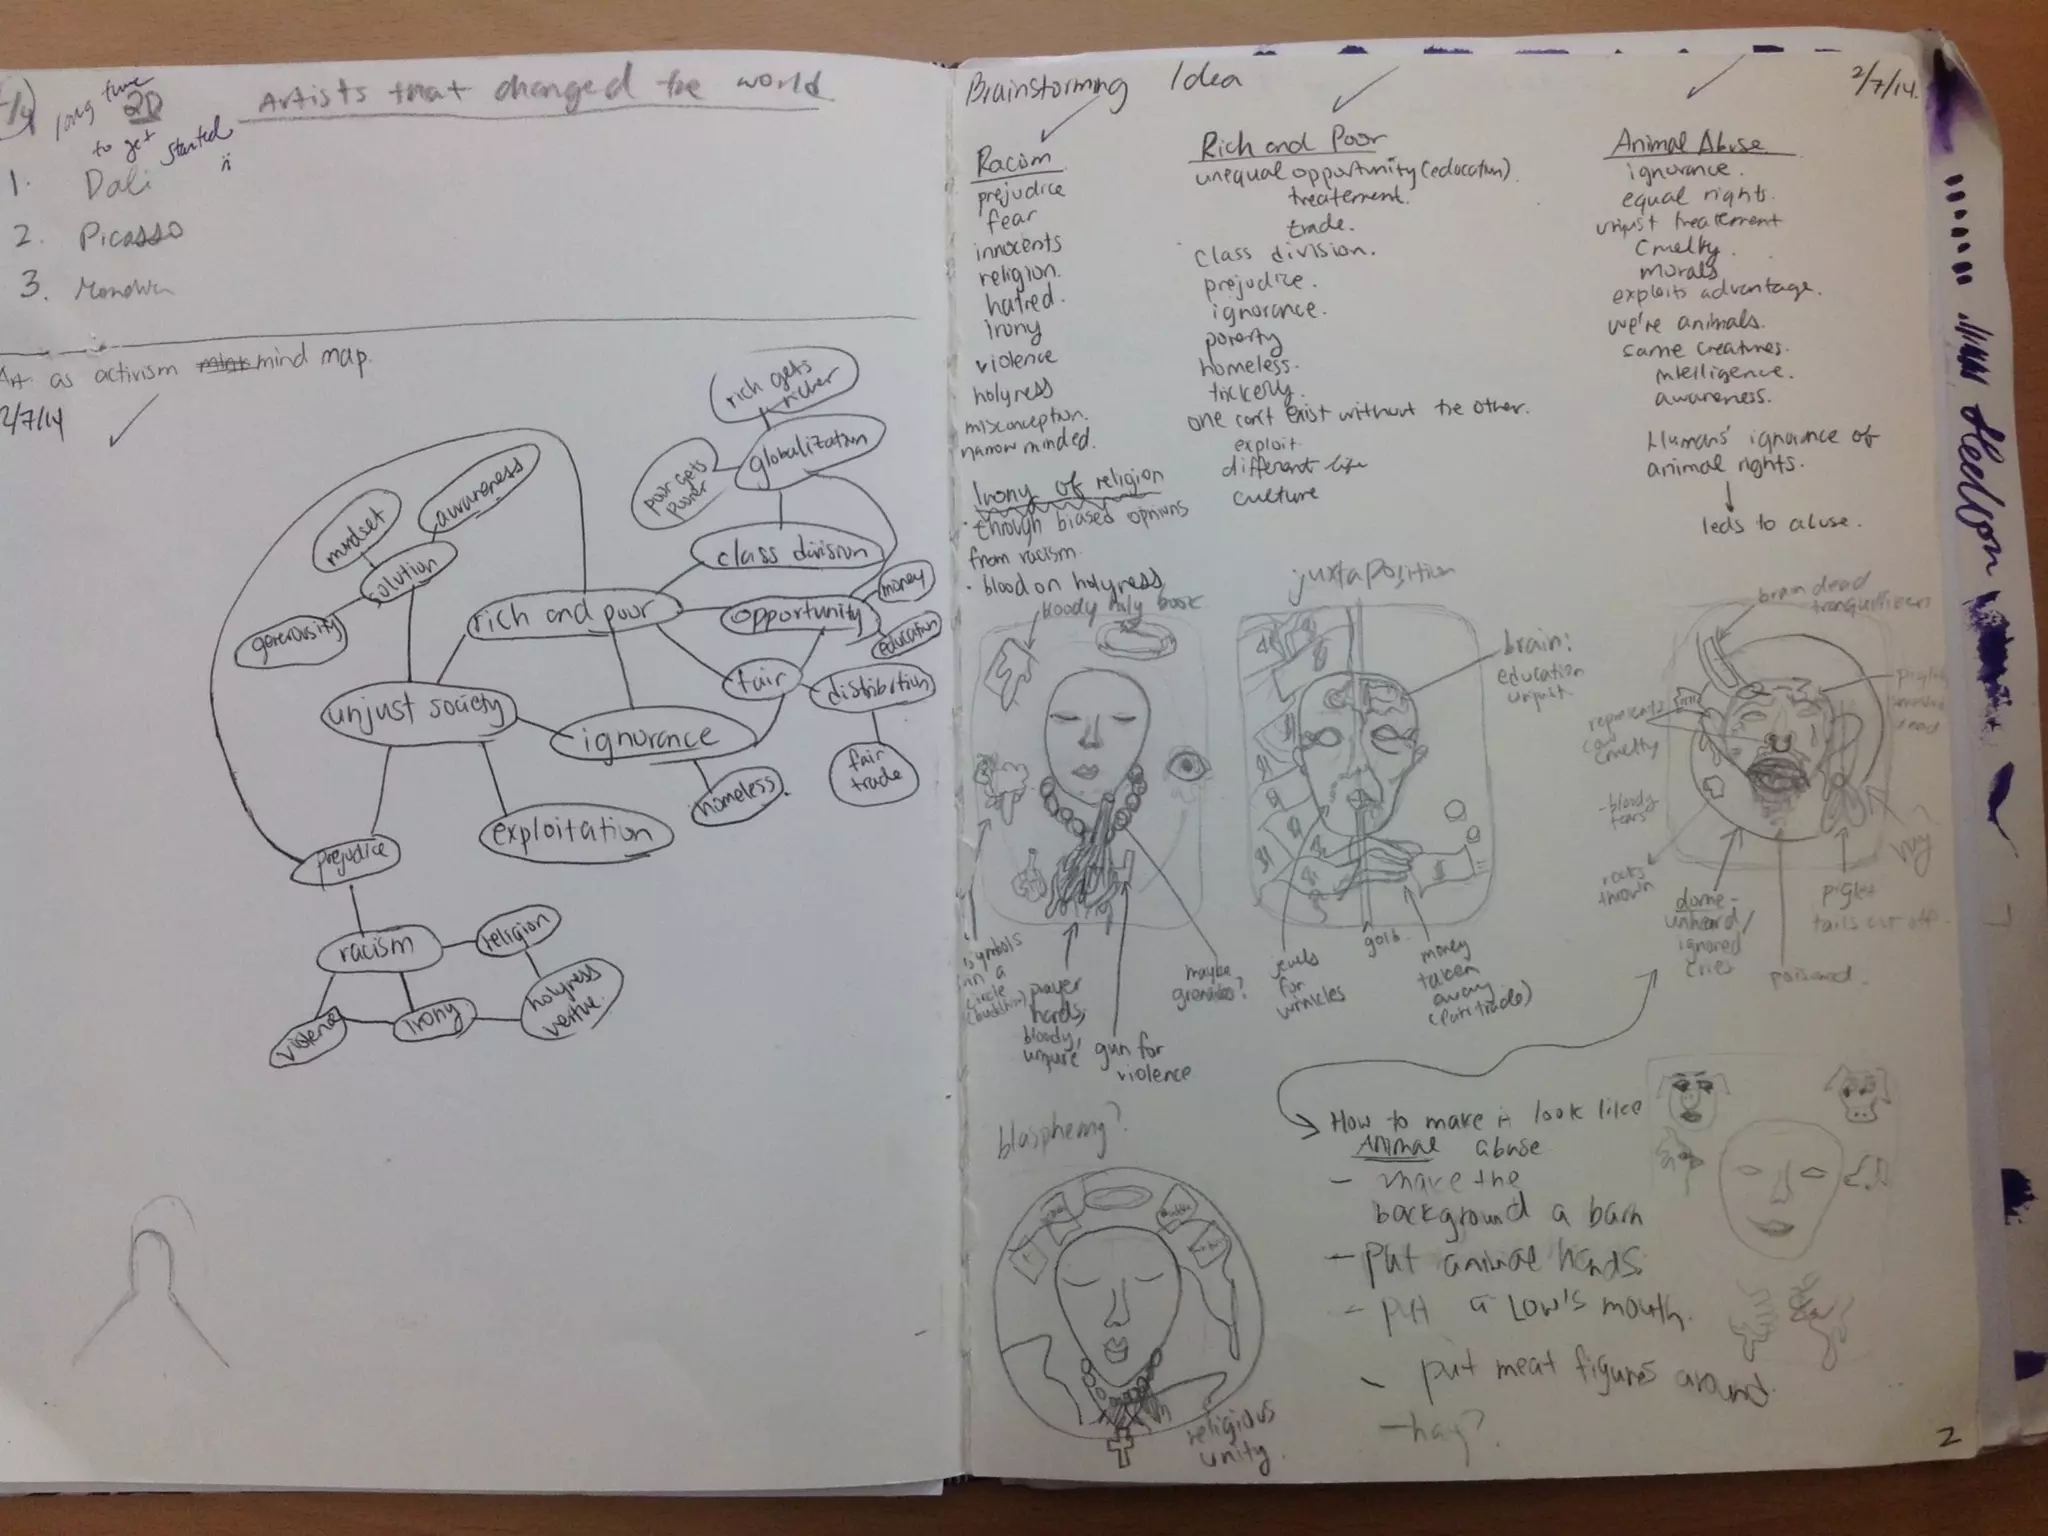 long time
2D
to get started
Artists that changed the world
1. Dali
2. Picasso
3.
Art as activism mind map.
2/7/14
rich gets richer
globalization
poor gets
awareness
mindset
solution
generousity
class division
rich and poor
opportunity
money
education
fair
distribution
fair trade
unjust society
ignorance
homeless.
exploitation
prejudice
racism
religion
violence
irony
holyness
Brainstorming Idea
2/7/14.
Racism
prejudice
fear
innocents
religion.
hatred.
irony
violence
holyness
misconception.
narrow minded.
Irony of religion
· through biased opinions
from racism
· blood on holyness
Rich and Poor
unequal opportunity (education).
treatement.
trade.
class division.
prejudice.
ignorance.
poverty
homeless.
one can't exist without the other.
exploit
different life
culture
Animal Abuse
ignorance.
equal rights.
unjust treatement
cruelty.
morals
exploits advantage.
we're animals.
same creatures.
intelligence.
awareness.
Humans' ignorance of
animal rights.
leds to abuse.
bloody holy book
juxtaposition
brain:
education
unjust
brain dead
tranquillizers
represents
cruelty
- bloody
tears
rocks
thrown
dome-
unheard/
ignored
cries
poisoned.
piglet
tails cut off
symbols
in a
circle
(buddhism)
prayer
hands,
bloody,
unpure
gun for
violence
maybe
grenades?
jewels
for
wrinkles
gold.
money
taken
away
blasphemy?
religious
unity.
How to make it look like
Animal abuse
- make the
background a barn
- put animal hands.
- put a cow's mouth.
- put meat figures around.
- hay?
2